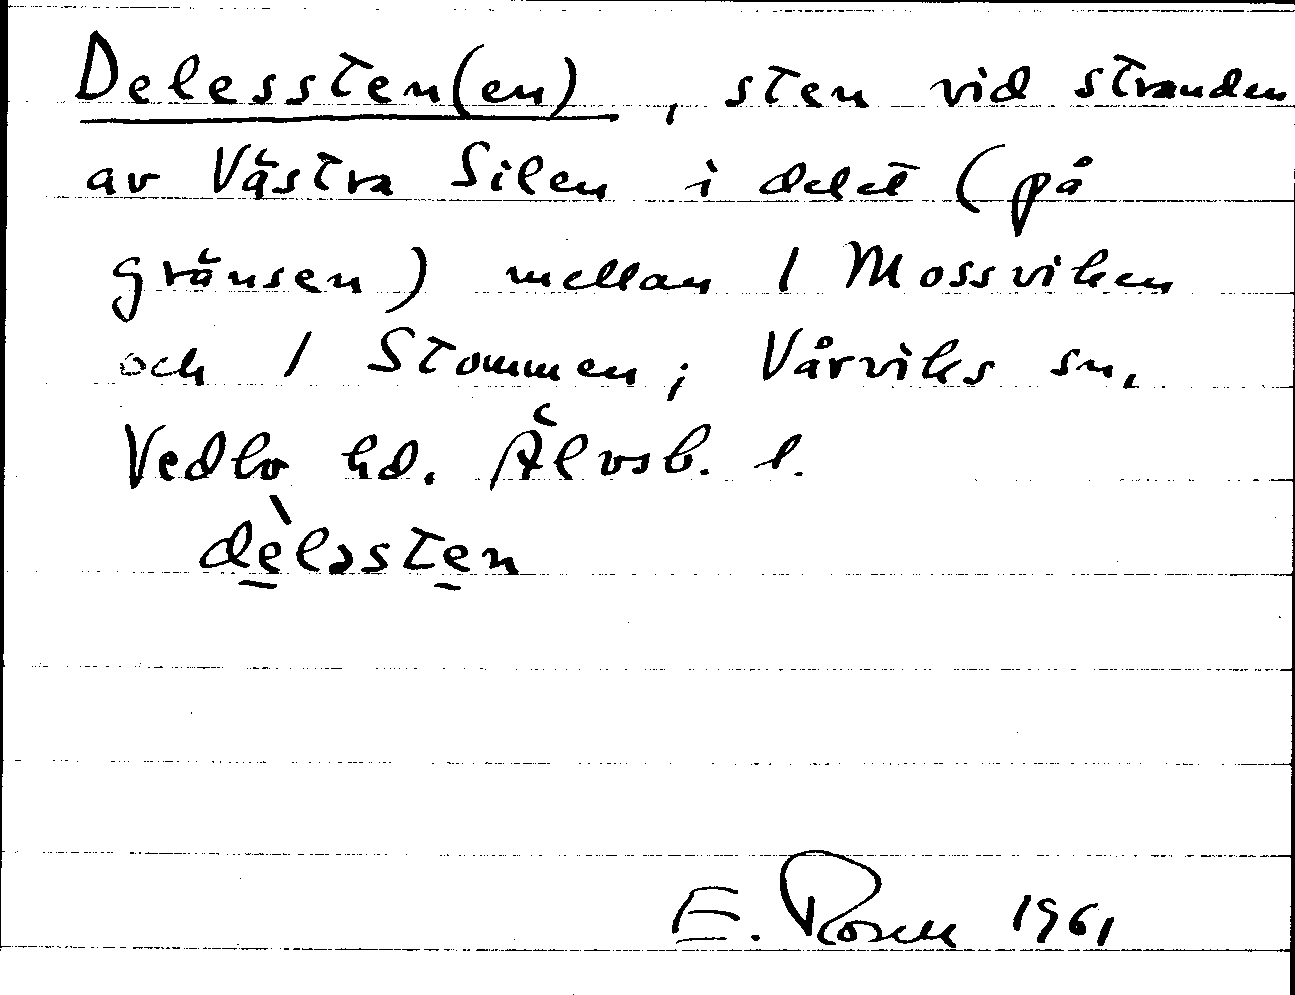 Delessten(en), sten vid stranden
av Västra Silen i delet (på
gränsen) mellan 1 Mossviken
och 1 Stommen; Vårviks sn,
Vedbo hd. Älvsb. l.
dèlssten
E. Rosell 1961